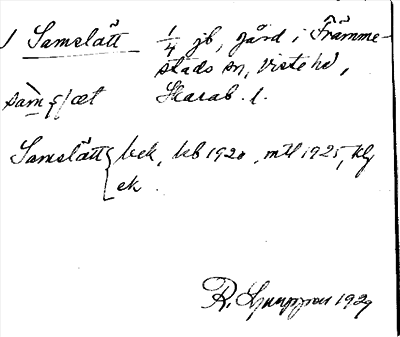 1 Samslätt 1/4 jb, gård i Främme-
stads sn, Viste hd,
Skarab. l.
sàmslæt
Samslätt { bek, kb 1920, mtl 1925, klj
ek.
R. Ljunggren 1927